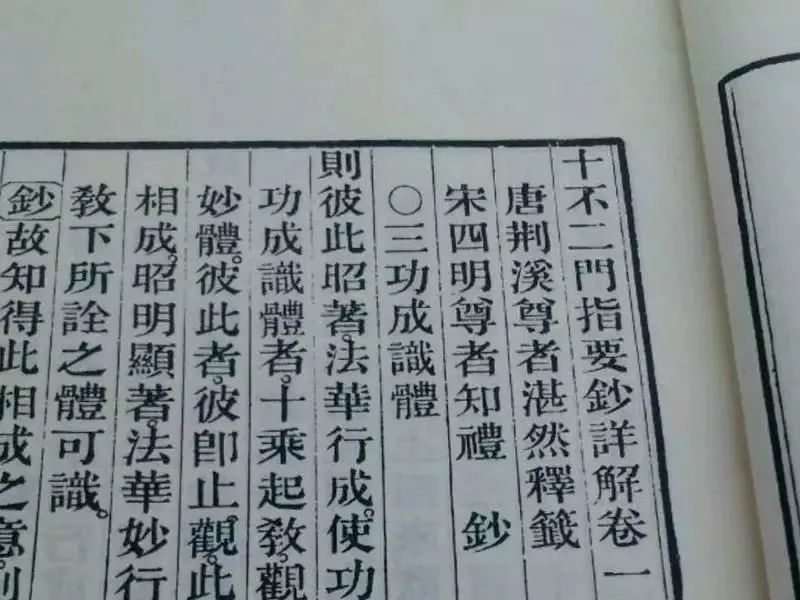 十不二門指要鈔詳解卷一
唐荆溪尊者湛然釋籤
宋四明尊者知禮 鈔
〇三功成識體
則彼此昭著。法華行成。使功
功成識體者。十乘起教。觀
妙體。彼此者。彼卽止。觀。此
相成。昭明顯著。法華妙行
教下所詮之體可識。
鈔故知得此相成之意。則